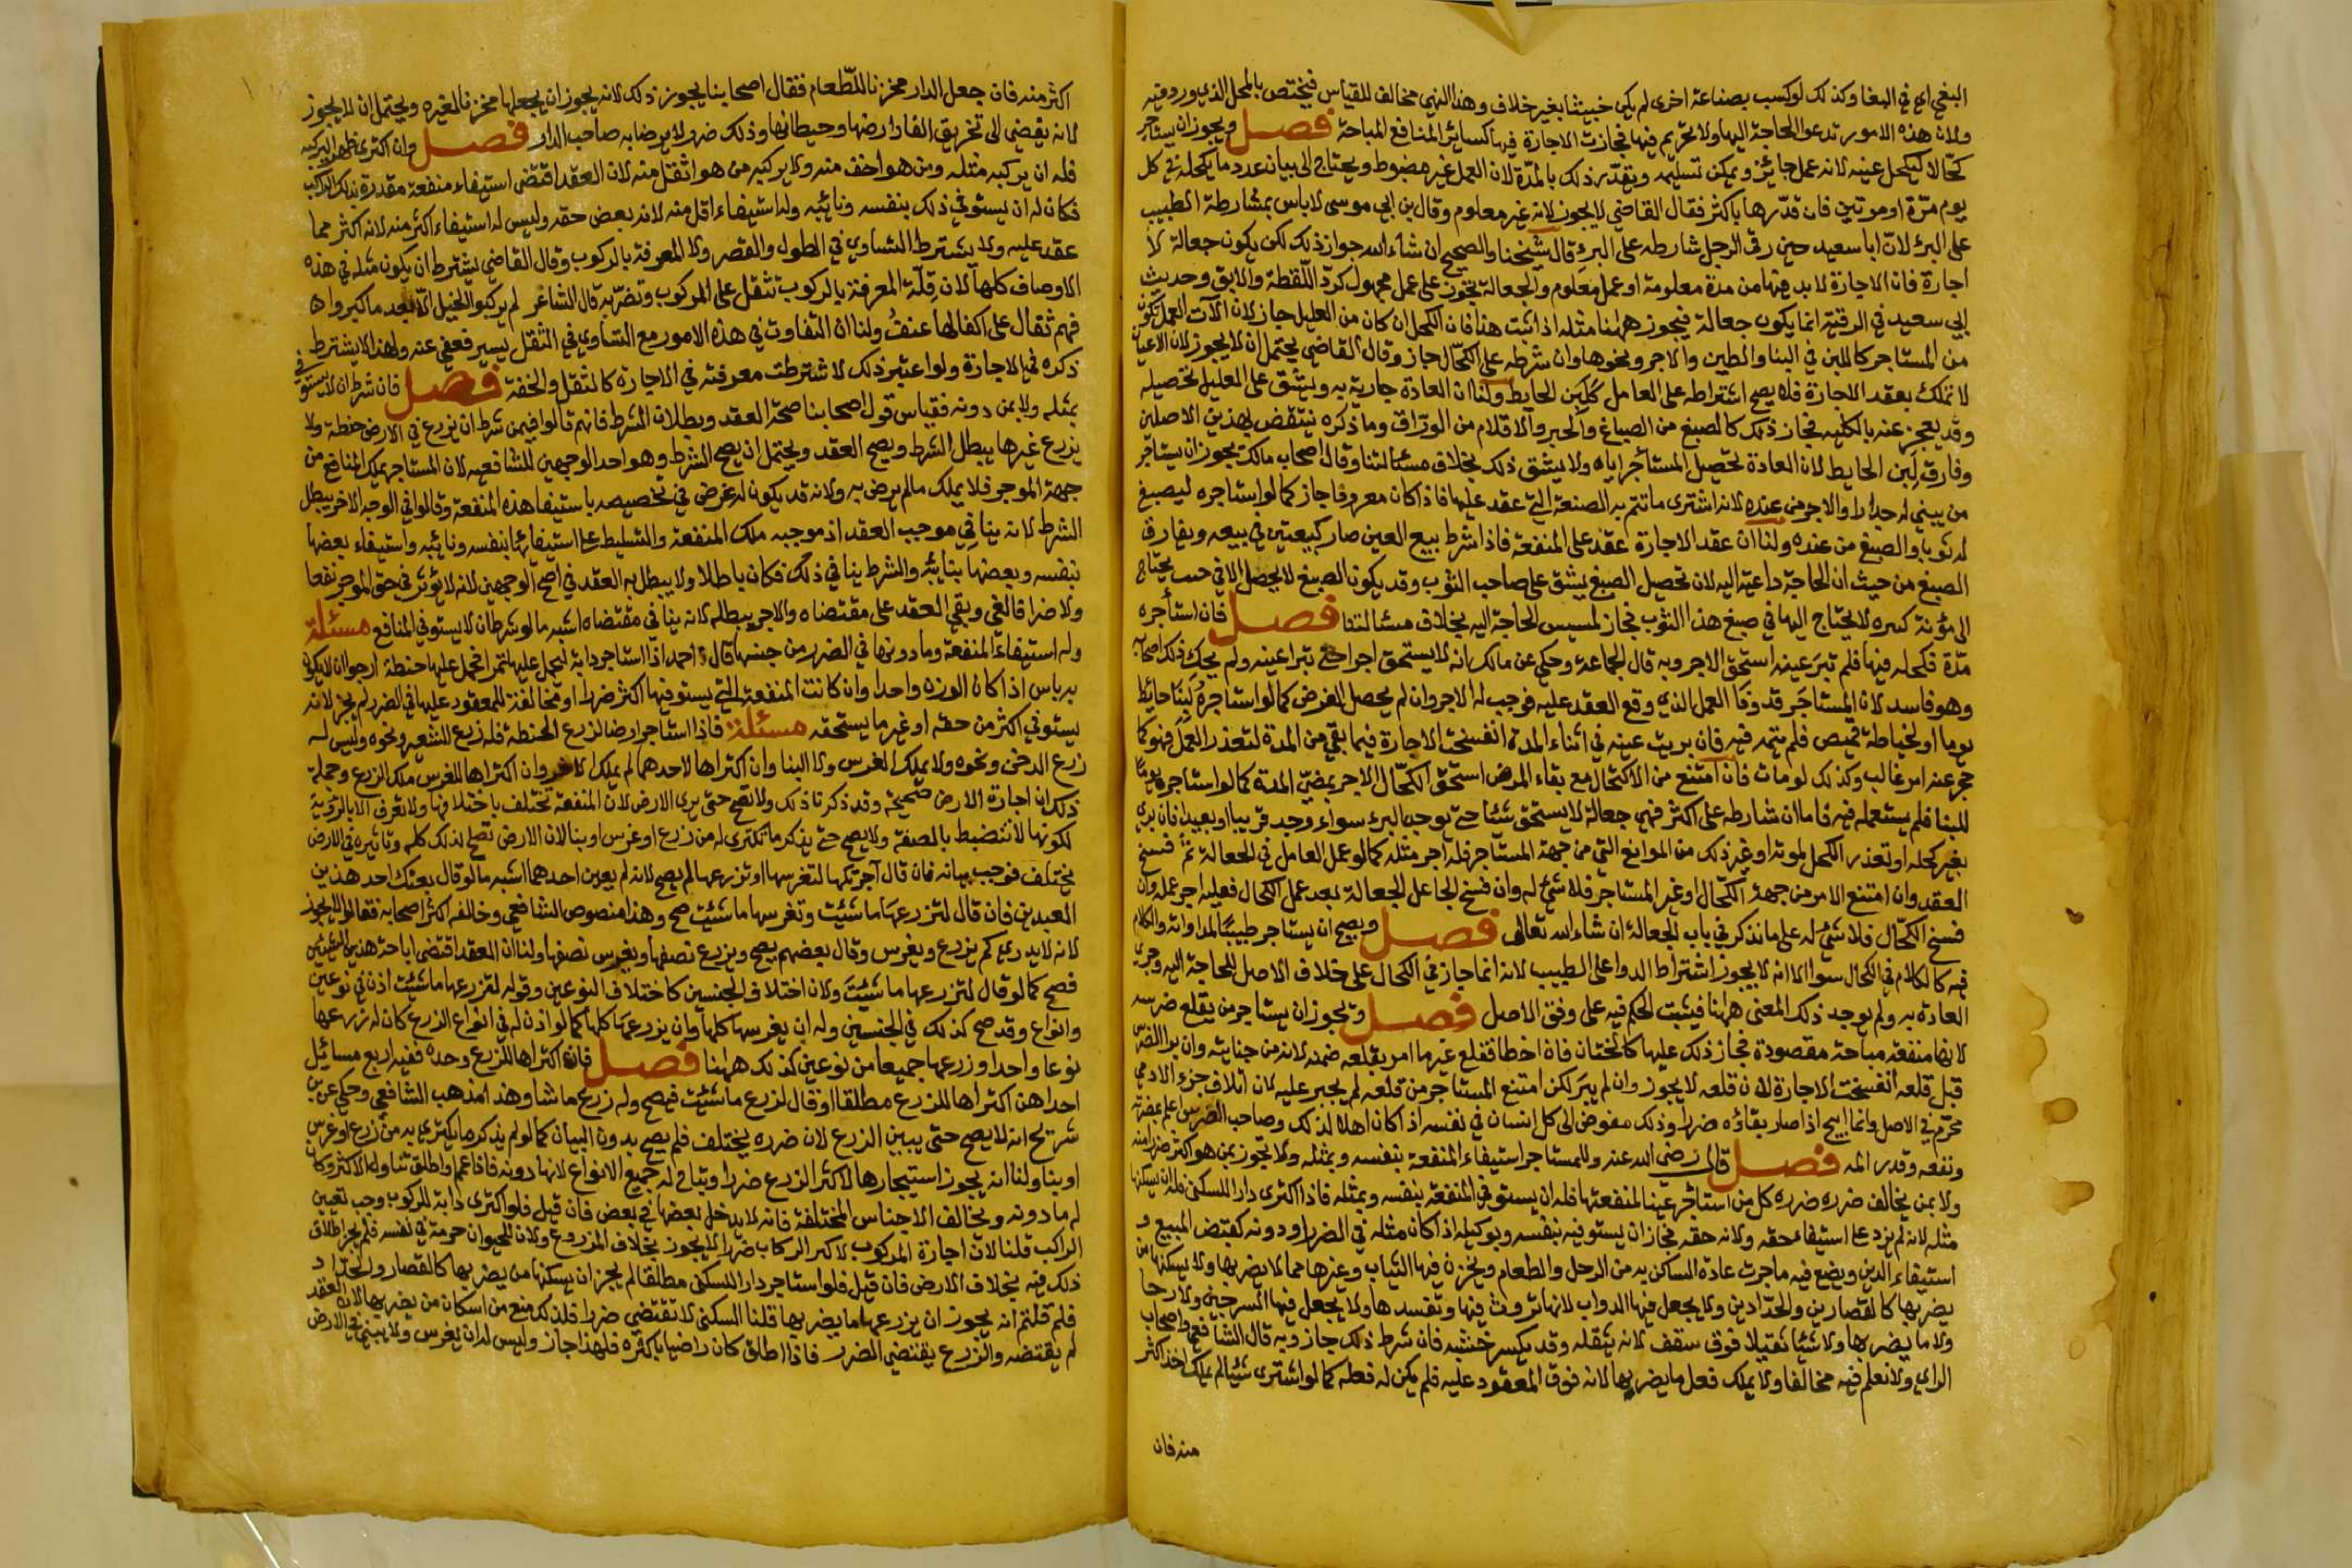 البغي اي في البغا وكذلك لو كسب بصناعة اخرى لم يكن خبيثا بغير خلاف وهذا النهي مخالف للقياس فيختص بالمحل الذي ورد فيه
ولان هذه الامور تدعو الحاجة اليها ولا تحريم فيها فجازت الاجارة فيها كسائر المنافع المباحة فصل ويجوز ان يستاجر
كحالا ليكحل عينه لانه عمل جائز ويمكن تسليمه ويقدر ذلك بالمدة لان العمل غير مضبوط ويحتاج الى بيان عدد ما يكحله في كل
يوم مرة او مرتين فان قدرها باكثر فقال القاضي لا يجوز لانه غير معلوم وقال بن ابي موسى لا باس بمشارطة الطبيب
على البرء لان ابا سعيد حين رقى الرجل شارطه على البرء قال شيخنا والصحيح ان شاء الله جواز ذلك لكن يكون جعالة لا
اجارة فان الاجارة لا بد فيها من مدة معلومة او عمل معلوم والجعالة تجوز على عمل مجهول كرد اللقطة والابق وحديث
ابي سعيد في الرقية انما يكون جعالة فيجوز ههنا مثله اذا ثبت هذا فان الكحل ان كان من العليل جاز لان الات العمل تكون
من المستاجر كاللبن في البنا والطين والاجر ونحوها وان شرطه على الكحال جاز وقال القاضي يحتمل ان لا يجوز لان الاعيان
لا تملك بعقد الاجارة فلا يصح اشتراطه على العامل كلبن الحايط ولنا ان العادة جارية به ويشق على العليل تحصيله
وقد يعجز عنه بالكلية فجاز ذلك كالصبغ من الصباغ والحبر والاقلام من الوراق وما ذكره ينتقض بهذين الاصلين
وفارق لبن الحايط لان العادة تحصيل المستأجر اياه ولا يشق ذلك بخلاف مسئالتنا وقال اصحاب مالك يجوز ان يستاجر
من يبني له جدارا والاجر من عنده لانه اشترى ما تتم به الصنعة التي عقد عليها فاذا كان معروفا جاز كما لو استاجره ليصبغ
له ثوبا والصبغ من عنده ولنا ان عقد الاجارة عقد على المنفعة فاذا شرط بيع العين صار كبيعتين في بيعه ويفارق
الصبغ من حيث ان الحاجة داعية اليه لان تحصيل الصبغ يشق على صاحب الثوب وقد يكون الصبغ لا يحصل الا في حب يحتاج
الى مؤنة كبيره لا يحتاج اليها في صبغ هذا الثوب فجاز لمسيس الحاجة اليه بخلاف مسئالتنا فصل فان استأجره
مدة فكحله فيها فلم تبر عينه استحق الاجر وبه قال الجماعة وحكي عن مالك انه لا يستحق اجرا حتى تبرا عينه ولم يحك ذلك اصحابه
وهو فاسد لان المستاجر قد وفا العمل الذي وقع العقد عليه فوجب له الاجر وان لم يحصل الغرض كما لو استاجره لبنا حائط
يوما او لخياطة قميص فلم يتمه فيه فان بريت عينه في اثناء المدة انفسخت الاجارة فيما بقي من المدة لتعذر العمل فهو كما
حجر عنه امر غالب وكذلك لو مات فان امتنع من الاكتحال مع بقاء المرض استحق الكحال الاجر بمضي المدة كما لو استاجره يوما
للبنا فلم يستعمله فيه فاما ان شارطه على اكثر فهي جعالة لا يستحق شيئا حتى يوجد البرء سواء وجد قريبا او بعيدا فان بري
بغير كحله او تعذر الكحل لموته او غير ذلك من الموانع التي من جهة المستاجر فله اجر مثله كما لو عمل العامل في الجعالة ثم فسخ
العقد وان امتنع الامر من جهة الكحال او غير المستاجر فلا شئ له وان فسخ الجاعل الجعالة بعد عمل الكحال فعليه اجر عمله وان
فسخ الكحال فلا شئ له على ما نذكر في باب الجعالة ان شاء الله تعالى فصل ويصح ان يستاجر طبيبا لمداواته والكلام
فيه كالكلام في الكحال سوا الا انه لا يجوز اشتراط الدوا على الطبيب لانه انما جاز في الكحال على خلاف الاصل للحاجة اليه وجري
العادة به ولم يوجد ذلك المعنى ههنا فيثبت الحكم فيه على وفق الاصل فصل ويجوز ان يستاجر من يقلع ضرسه
لانها منفعة مباحة مقصودة فجاز ذلك عليها كالختان فان اخطا فقلع غير ما امر بقلعه ضمنه لانه من جنايته وان برا الضرس
قبل قلعه انفسخت الاجارة لان قلعه لا يجوز وان لم يبر لكن امتنع المستاجر من قلعه لم يجبر عليه لان اتلاف جزء الادمي
محرم في الاصل وانما ابيح اذا صار بقاؤه ضررا وذلك مفوض الى كل انسان في نفسه اذا كان اهلا لذلك وصاحب الضرس اعلم بمضرته
ونفعه وقدر المه فصل قال رضي الله عنه وللمستاجر استيفاء المنفعة بنفسه وبمثله ولا تجوز بمن هو اكثر ضررا منه
ولا بمن يخالف ضرره ضرره كل من استاجر عينا لمنفعتها فله ان يستوفي المنفعة بنفسه وبمثله فاذا اكترى دارا للسكنى فله ان يسكنها
مثله لانه لم يزد على استيفاء حقه ولانه حقه فجاز ان يستوفيه بنفسه وبوكيله اذا كان مثله في الضرر او دونه كقبض المبيع و
استيفاء الدين ويضع فيه ما جرت عادة الساكن به من الرحل والطعام ويخزن فيها الثياب وغيرها مما لا يضر بها ولا يسكنها من
يضر بها كالقصارين والحدادين ولا يجعل فيها الدواب لانها تروث فيها وتفسدها ولا يجعل فيها السرجين ولا رحا
ولا ما يضر بها ولا شيئا ثقيلا فوق سقف لانه يثقله وقد يكسر خشبه فان شرط ذلك جاز وبه قال الشافعي واصحاب
الراي ولا نعلم فيه مخالفا ولا يملك فعل ما يضر بها لانه فوق المعقود عليه فلم يكن له فعله كما لو اشترى شيئا لم يملك اخذ اكثر
منه فان
اكثر منه فان جعل الدار مخزنا للطعام فقال اصحابنا يجوز ذلك لانه يجوز ان يجعلها مخزنا لغيره ويحتمل ان لا يجوز
لانه يفضي الى تخريق الفار ارضها وحيطانها وذلك ضرر لا يرضا به صاحب الدار فصل وان اكترى ظهرا ليركبه
فله ان يركبه مثله ومن هو اخف منه ولا يركبه من هو اثقل منه لان العقد اقتضى استيفاء منفعة مقدرة بذلك الراكب
فكان له ان يستوفي ذلك بنفسه ونائبه وله استيفاء اقل منه لانه بعض حقه وليس له استيفاء اكثر منه لانه اكثر مما
عقد عليه ولا يشترط التساوي في الطول والقصر ولا المعرفة بالركوب وقال القاضي يشترط ان يكون مثله في هذه
الاوصاف كلها لان قلة المعرفة بالركوب تثقل على المركوب وتضر به قال الشاعر لم يركبوا الخيل الا بعد ما كبروا ها
فهم ثقال على اكفالها عنف ولنا ان التفاوت في هذه الامور مع التساوي في الثقل يسير فعفي عنه ولهذا لا يشترط
ذكره في الاجارة ولو اعتبر ذلك لاشترطت معرفته في الاجارة كالثقل والخفة فصل فان شرط ان لا يستوفي
بمثله ولا بمن دونه فقياس قول اصحابنا صحة العقد وبطلان الشرط فانهم قالوا فيمن شرط ان يزرع في الارض حنطة ولا
يزرع غيرها يبطل الشرط ويصح العقد ويحتمل ان يصح الشرط وهو احد الوجهين للشافعيه لان المستاجر يملك المنافع من
جهة الموجر فلا يملك ما لم يرض به ولانه قد يكون له غرض في تخصيصه باستيفا هذه المنفعة وقالوا في الوجه الاخر يبطل
الشرط لانه ينافي موجب العقد اذ موجبه ملك المنفعة والتسليط على استيفائها بنفسه ونائبه واستيفاء بعضها
بنفسه وبعضها بنائبه والشرط ينافي ذلك فكان باطلا ولا يبطل به العقد في اصح الوجهين لانه لا يؤثر في حق الموجر نفعا
ولا ضرا فالغي وبقي العقد على مقتضاه والاجر يبطله لانه ينافي مقتضاه اشبه ما لو شرط ان لا يستوفي المنافع مسئلة
وله استيفاء المنفعة وما دونها في الضرر من جنسها قال احمد اذا استاجر دابة ليحمل عليها تمرا فحمل عليها حنطة ارجوا ان لا يكون
به باس اذا كان الوزن واحدا وان كانت المنفعة التي يستوفيها اكثر ضررا او مخالفة للمعقود عليها في الضرر لم يجز لانه
يستوفي اكثر من حقه او غير ما يستحقه مسئلة فاذا استاجر ارضا لزرع الحنطة فله زرع الشعير ونحوه وليس له
زرع الدخن ونحوه ولا يملك الغرس ولا البنا وان اكتراها لاحدهما لم يملك الاخر وان اكتراها للغرس ملك الزرع وجملة
ذلك ان اجارة الارض صحيحة وقد ذكرنا ذلك ولا تصح حتى يرى الارض لان المنفعة تختلف باختلافها ولا تعرف الا بالرؤية
لكونها لا تنضبط بالصفة ولا يصح حتى يذكر ما تكترى له من زرع او غرس او بنا لان الارض تصلح لذلك كله وتاثيره في الارض
يختلف فوجب بيانه فان قال آجرتكها لتغرسها او تزرعها لم يصح لانه لم يعين احدهما اشبه ما لو قال بعتك احد هذين
العبدين فان قال لتزرعها ما شئت وتغرسها ما شئت صح وهذا منصوص الشافعي وخالفه اكثر اصحابه فقالوا لا يجوز
لانه لا يدري كم يزرع ويغرس وقال بعضهم يصح ويزرع نصفها ويغرس نصفها ولنا ان العقد اقتضى اباحة هذين الشيئين
فصح كما لو قال لتزرعها ما شئت ولان اختلاف الجنسين كاختلاف النوعين وقوله لتزرعها ما شئت اذن في نوعين
وانواع وقد صح كذلك في الجنسين وله ان يغرسها كلها وان يزرعها كلها كما لو اذن له في انواع الزرع كان له زرعها
نوعا واحدا وزرعها جميعا من نوعين كذلك ههنا فصل فان اكتراها للزرع وحده ففيه اربع مسائيل
احداهن اكتراها للزرع مطلقا او قال لزرع ما شئت فيصح وله زرع ما شا وهذا مذهب الشافعي وحكي عن بن
شريح انه لا يصح حتى يبين الزرع لان ضرره يختلف فلم يصح بدون البيان كما لو لم يذكر ما يكتري به من زرع او غرس
او بنا ولنا انه يجوز استيجارها لاكثر الزرع ضررا ويباح له جميع الانواع لانها دونه فاذا عمم او اطلق تناول الاكثر وكان
له ما دونه ويخالف الاجناس المختلفة فانه لا يدخل بعضها في بعض فان قيل فلو اكترى دابة للركوب وجب تعيين
الراكب قلنا لان اجارة المركوب لاكبر الركاب ضررا لا يجوز بخلاف المزروع ولان للحيوان حرمة في نفسه فلم يجز اطلاق
ذلك فيه بخلاف الارض فان قيل فلو استاجر دارا للسكنى مطلقا لم يجز ان يسكنها من يضر بها كالقصار والحداد
فلم قلتم انه يجوز ان يزرعها ما يضر بها قلنا السكنى لا تقتضي ضررا فلذلك منع من اسكان من يضر بها لان العقد
لم يقتضه والزرع يقتضي الضرر فاذا اطلق كان راضيا باكثره فلهذا جاز وليس له ان يغرس ولا يبني في الارض